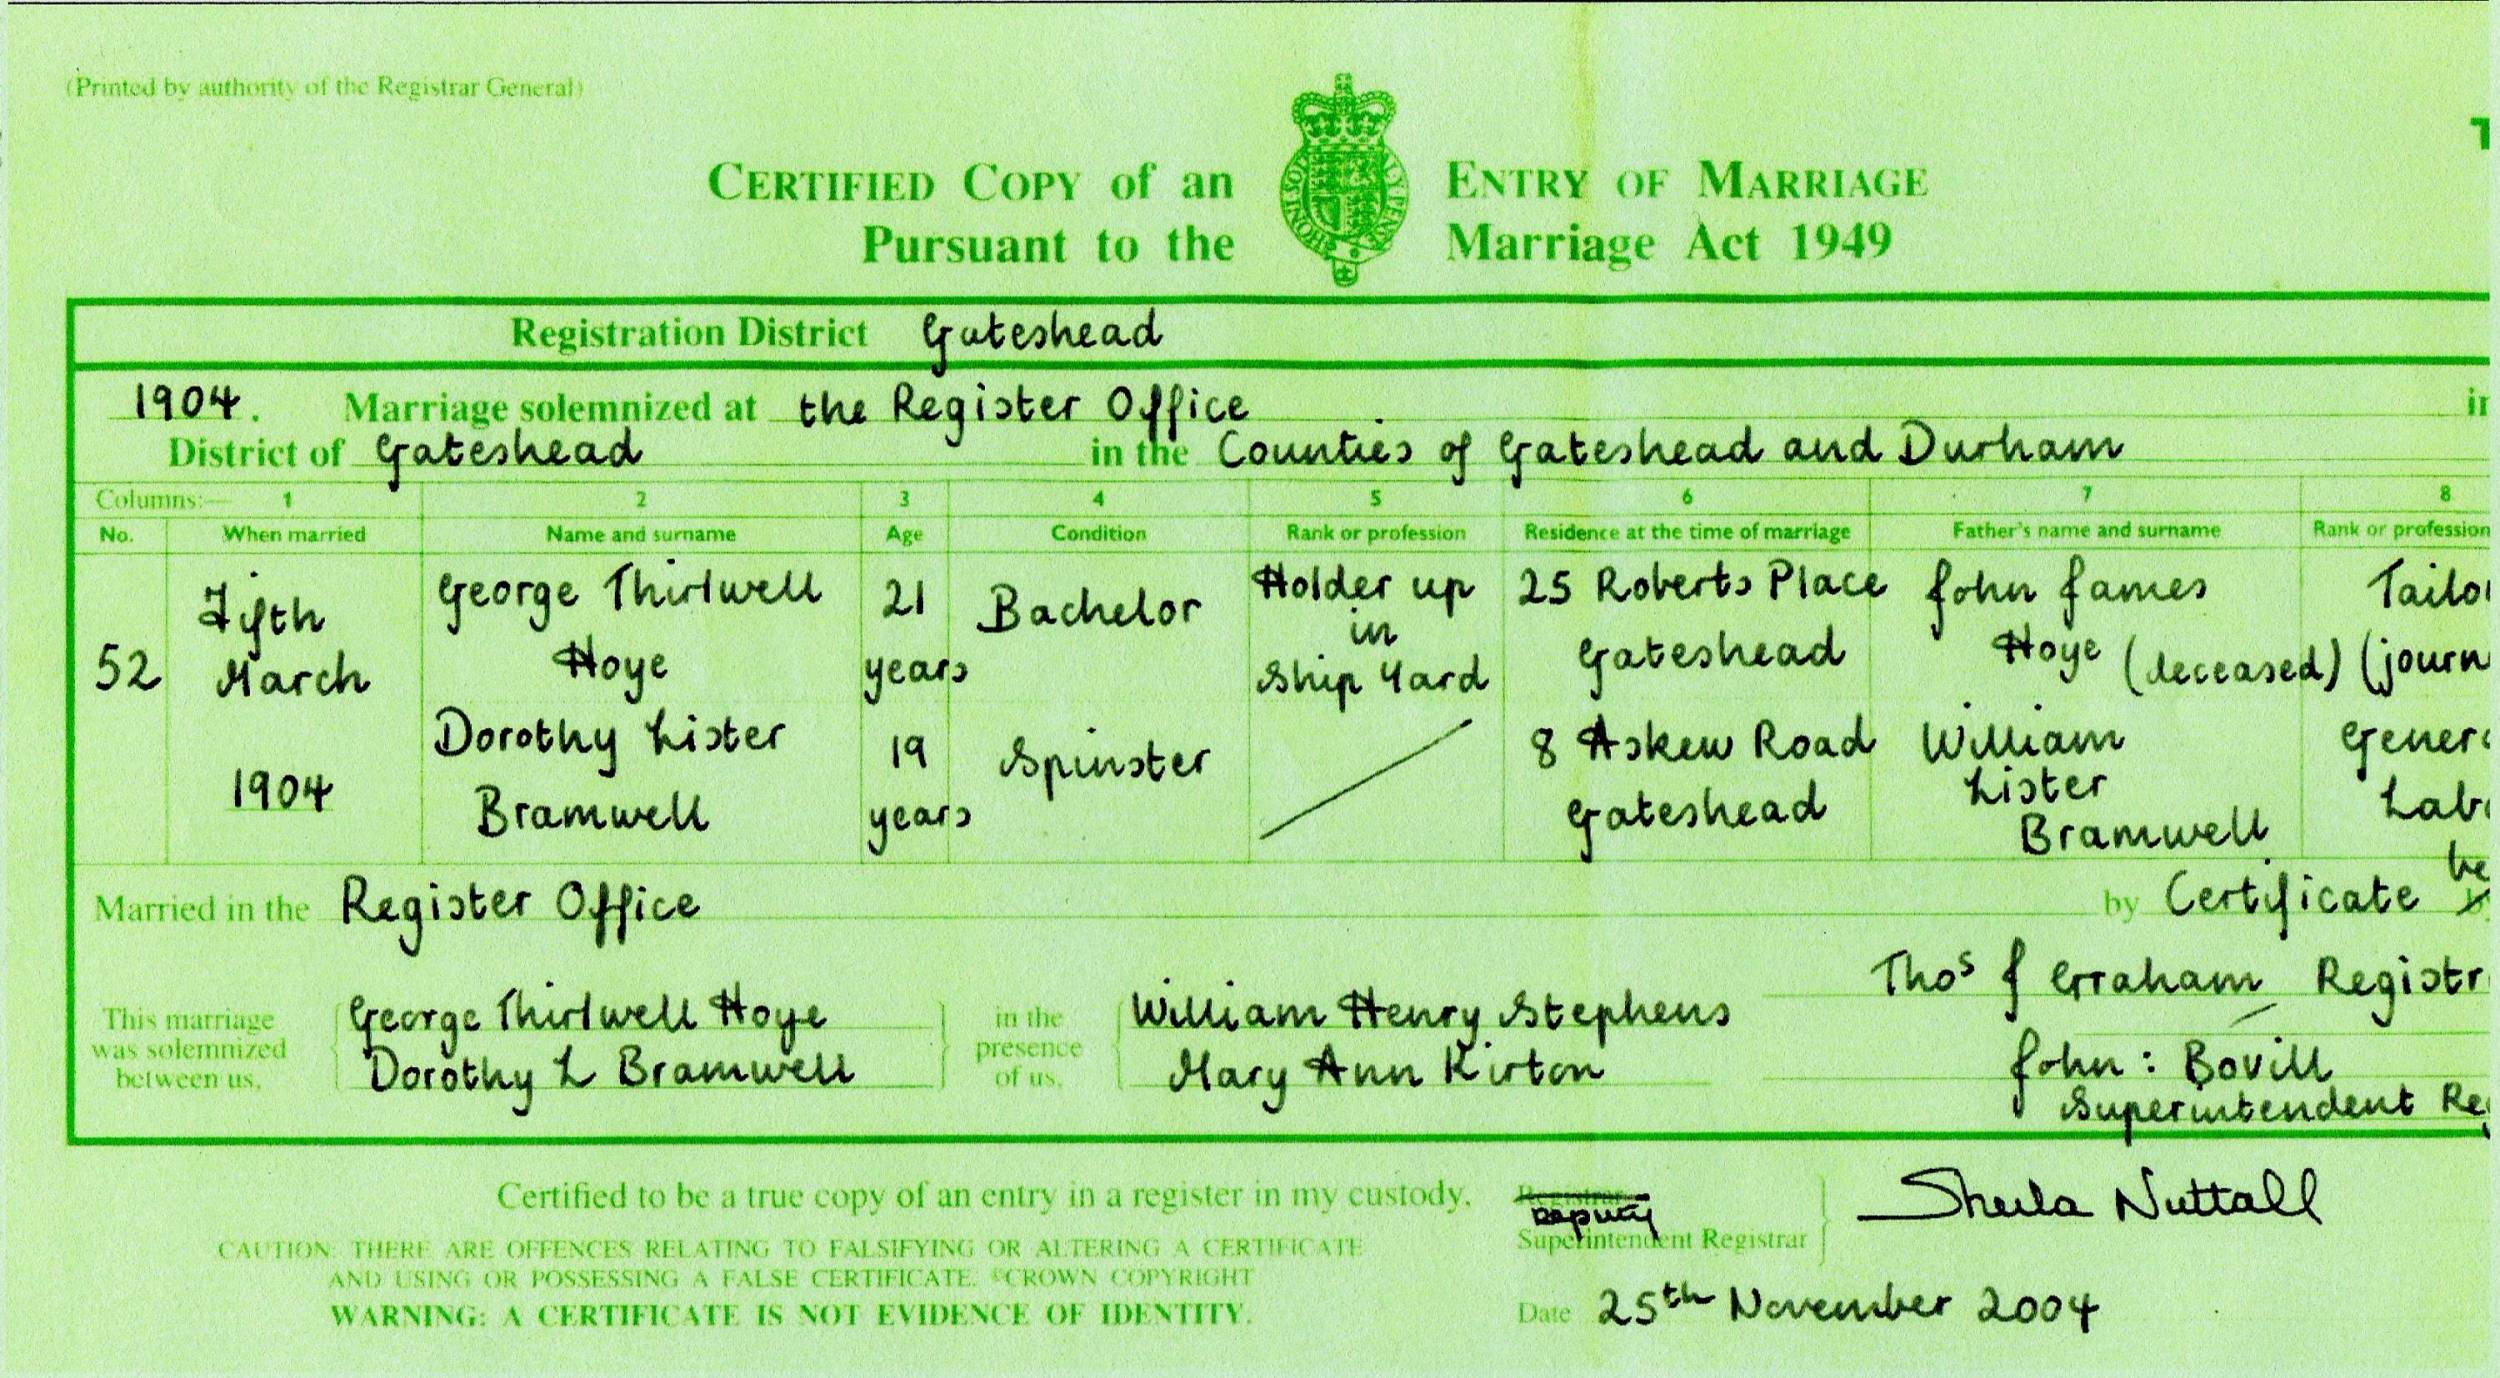 (Printed by authority of the Registrar General)
CERTIFIED COPY of an ENTRY OF MARRIAGE
Pursuant to the Marriage Act 1949
HONI SOIT
Registration District Gateshead
1904. Marriage solemnized at the Register Office
District of Gateshead in the Counties of Gateshead and Durham
Columns:— 1 2 3 4 5 6 7 8
No. When married Name and surname Age Condition Rank or profession Residence at the time of marriage Father's name and surname Rank or profession
52
Fifth
March
1904
George Thirlwell
Hoye
21
years
Bachelor
Holder up
in
Ship Yard
25 Roberts Place
Gateshead
John James
Hoye (deceased)
Dorothy Lister
Bramwell
19
years
Spinster
8 Askew Road
Gateshead
William
Lister
Bramwell
Married in the Register Office by Certificate
This marriage
was solemnized
between us,
George Thirlwell Hoye
Dorothy L Bramwell
in the
presence
of us,
William Henry Stephens
Mary Ann Kirton
Thos J Graham
John : Bovill
Superintendent
Certified to be a true copy of an entry in a register in my custody.
Registrar
Deputy
Superintendent Registrar
Sheila Nuttall
CAUTION: THERE ARE OFFENCES RELATING TO FALSIFYING OR ALTERING A CERTIFICATE
AND USING OR POSSESSING A FALSE CERTIFICATE. ©CROWN COPYRIGHT
WARNING: A CERTIFICATE IS NOT EVIDENCE OF IDENTITY.
Date 25th November 2004